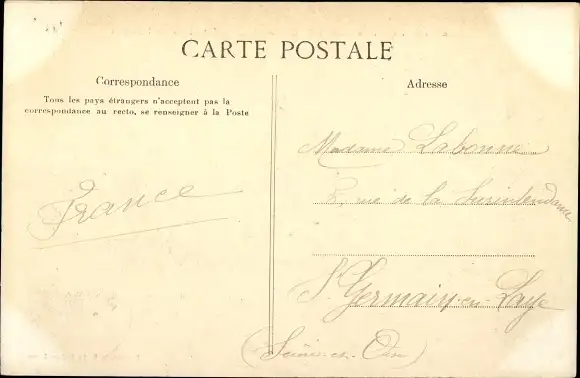 CARTE POSTALE
Correspondance
Tous les pays étrangers n'acceptent pas la
correspondance au recto, se renseigner à la Poste
France
Adresse
Madame Labonne
8, rue de la Surintendance
St Germain-en-Laye
(Seine-et-Oise)